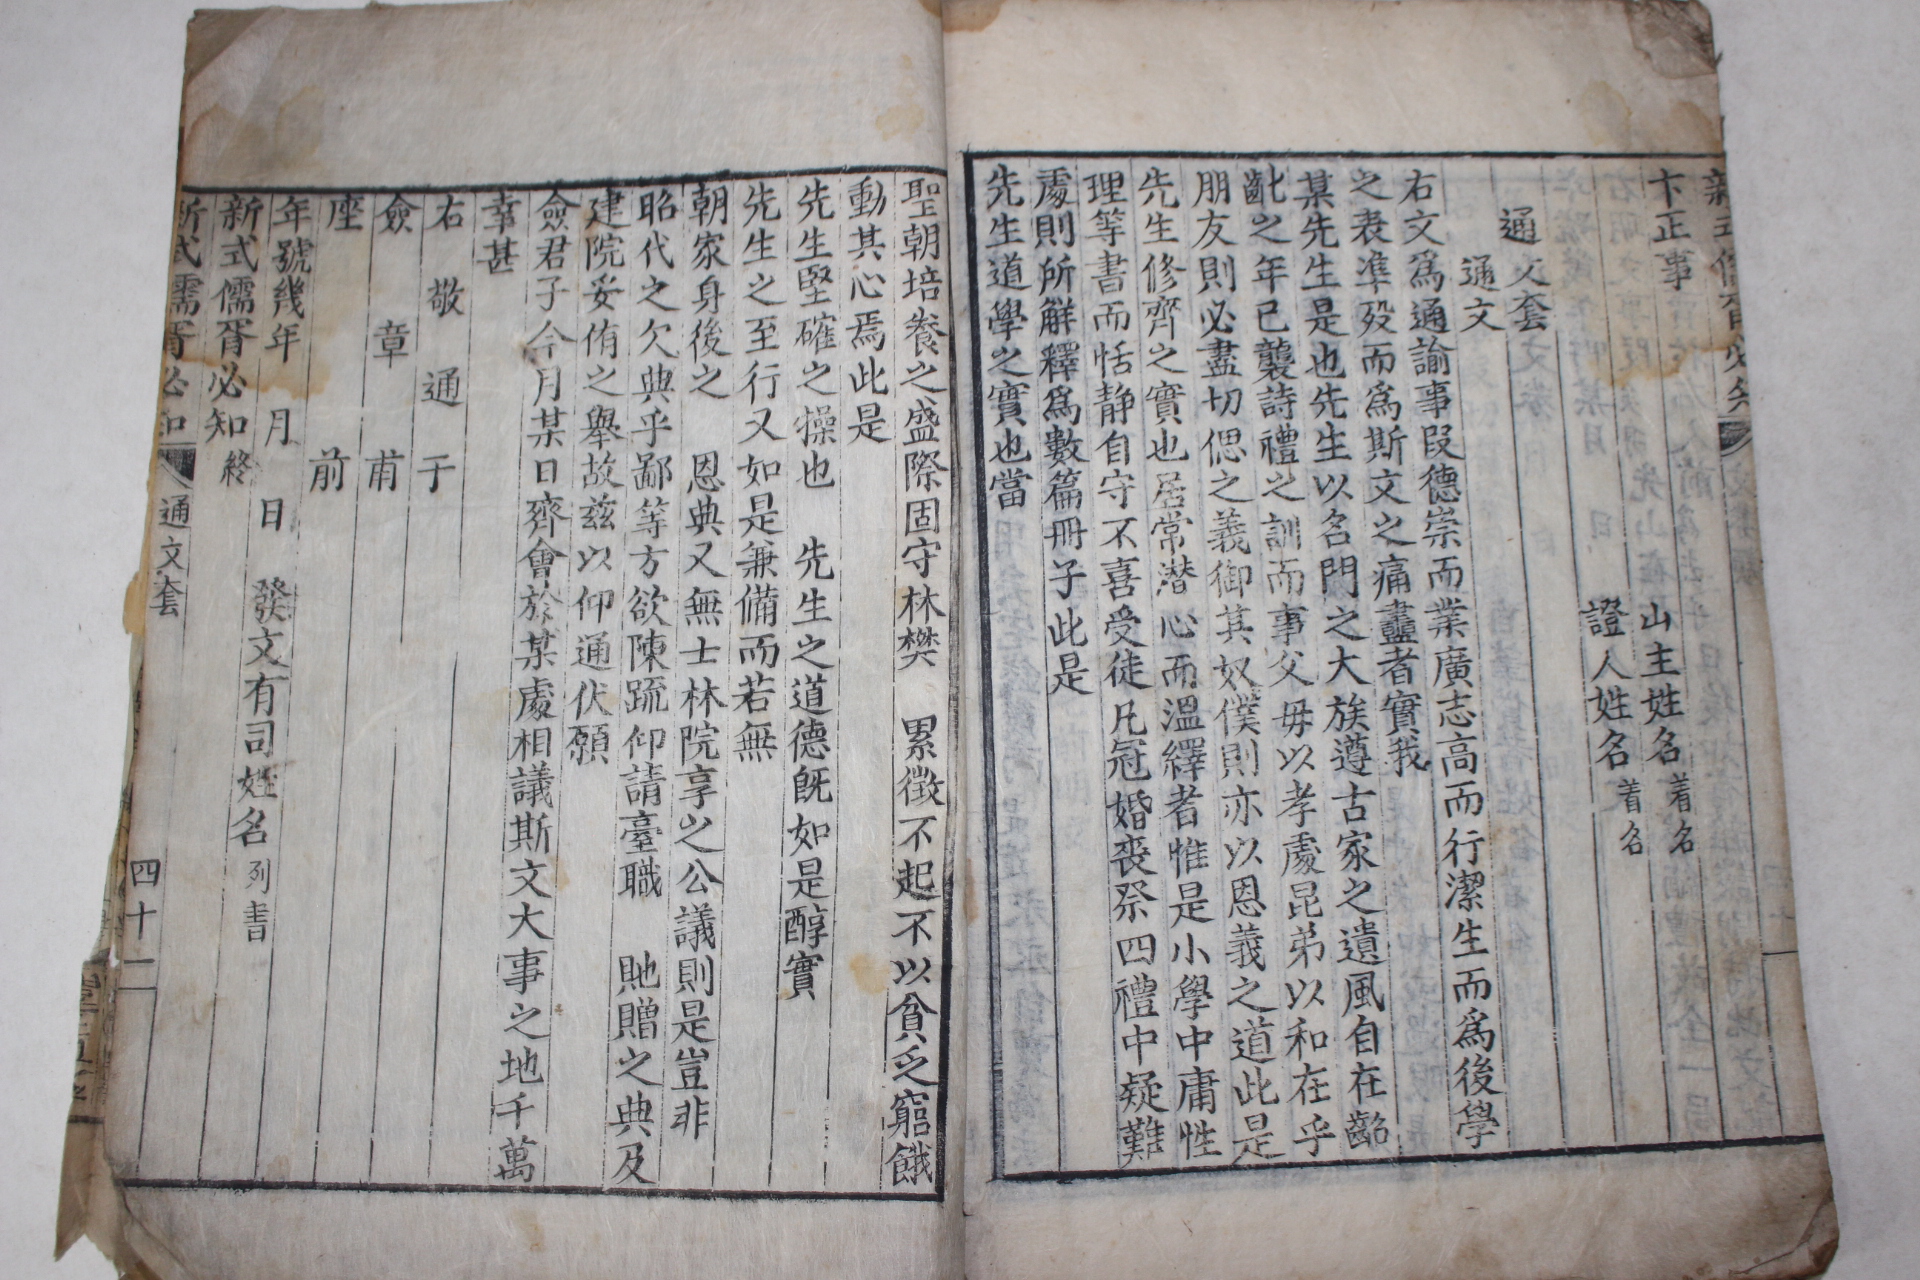 新式儒胥必知
卞正事
山主姓名 着名
證人姓名 着名
通文套
通文
右文爲通諭事叚德崇而業廣志高而行潔生而爲後學
之表準歿而爲斯文之痛盡者實我
某先生是也先生以名門之大族遵古家之遺風自在齠
齔之年已襲詩禮之訓而事父毋以孝處昆弟以和在乎
朋友則必盡切偲之義御其奴僕則亦以恩義之道此是
先生修齊之實也居常潜心而溫繹者惟是小學中庸性
理等書而恬静自守不喜受徒凡冠婚丧祭四禮中疑難
處則所解釋爲數篇冊子此是
先生道學之實也當
聖朝培養之盛際固守林樊 累徵不起不以貧乏窮餓
動其心焉此是
先生堅確之操也 先生之道德旣如是醇實
先生之至行又如是兼備而若無
朝家身後之 恩典又無士林院享之公議則是豈非
昭代之欠典乎鄙等方欲陳疏仰請臺職 貤贈之典及
建院妥侑之舉故玆以仰通伏願
僉君子今月某日齊會於某處相議斯文大事之地千萬
幸甚
右敬通于
僉章甫
座前
年號幾年 月 日 發文有司姓名 列書
新式儒胥必知 終
新式儒胥必知 通文套 四十二